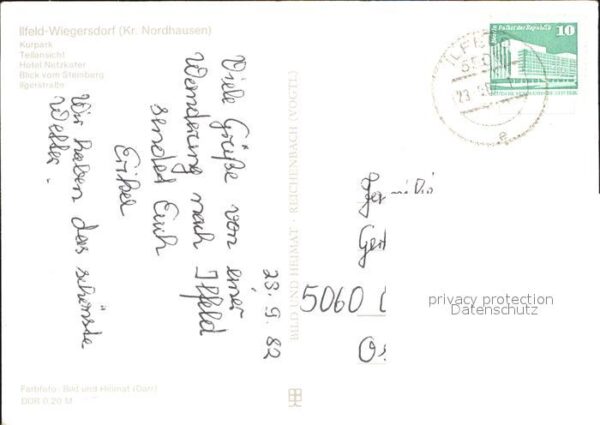 Ilfeld-Wiegersdorf (Kr. Nordhausen)
Kurpark
Teilansicht
Hotel Netzkater
Blick vom Steinberg
Ilgerstraße
23. 9. 82
Viele Grüße von einer
Wanderung nach Ilfeld
sendet Euch
Wir haben das schönste
Wetter.
BILD UND HEIMAT · REICHENBACH (VOGTL)
Farbfoto: Bild und Heimat (Darr)
DDR 0,20 M
Palast der Republik
10
ILFELD
23.
e
5060
privacy protection
Datenschutz